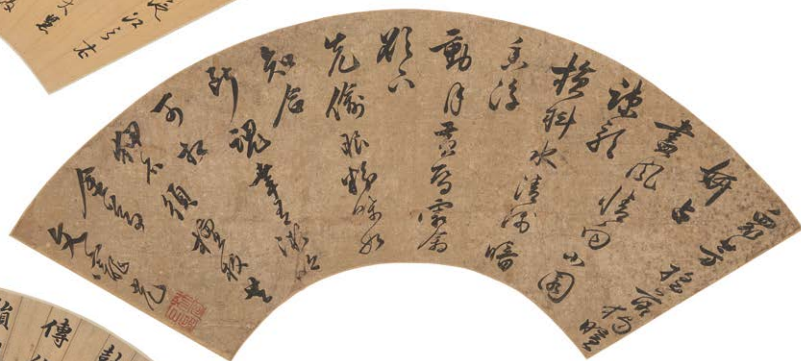 眾芳搖落獨暄
妍占
盡風情向小園
疎影
橫斜水清淺暗
香浮
動月黃昏霜禽
欲下
先偷眼粉蝶如
知合
斷魂幸有微吟
可相
狎不須檀板共
金尊
文
傳